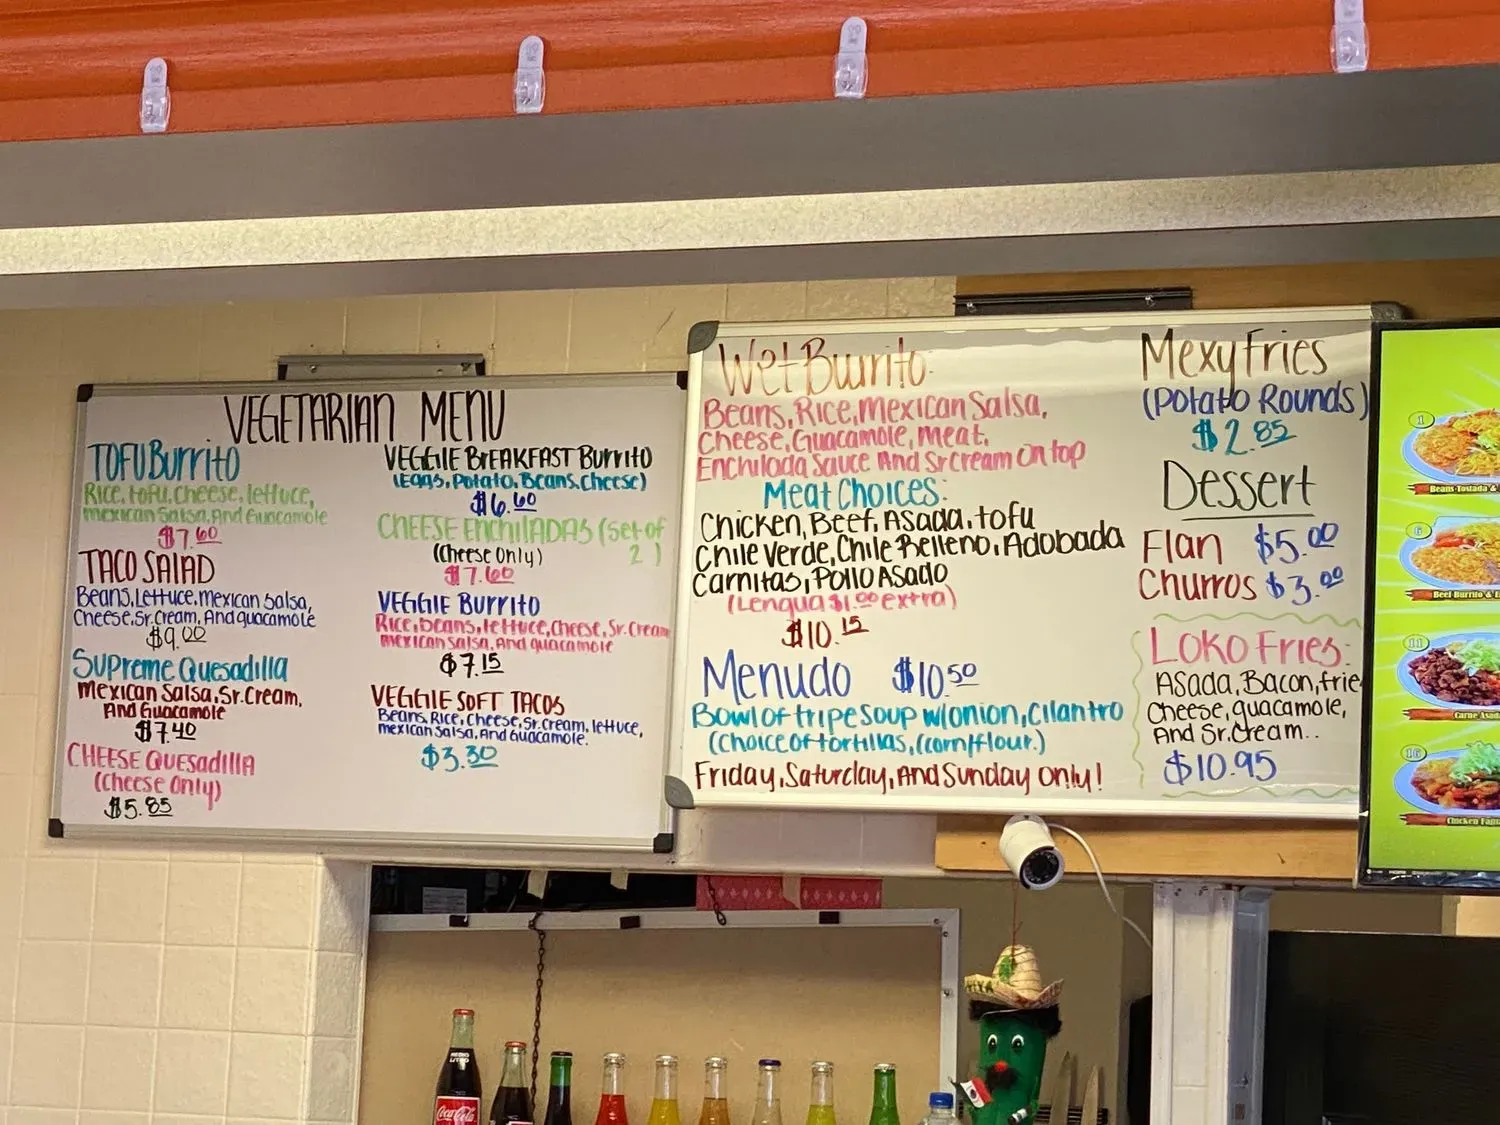 VEGETARIAN MENU
TOFU Burrito
Rice, tofu, cheese, lettuce,
mexican Salsa, And Guacamole
$7.60
TACO SALAD
Beans, Lettuce, mexican Salsa,
Cheese, Sr. Cream, And guacamole
$9.00
Supreme Quesadilla
Mexican Salsa, Sr. Cream,
And Guacamole
$7.40
CHEESE QUESADILLA
(Cheese Only)
$5.85
VEGGIE BREAKFAST Burrito
(Eggs, Potato, Beans, Cheese)
$6.60
CHEESE EnchilADAS (Set of
2)
(Cheese Only)
$7.60
VEGGIE Burrito
Rice, beans, lettuce, cheese, Sr. Cream
mexican salsa, And guacamole
$7.15
VEGGIE SOFT TACOS
Beans, Rice, Cheese, Sr. Cream, lettuce,
mexican Salsa, And Guacamole.
$3.30
Wet Burrito:
Beans, Rice, Mexican Salsa,
Cheese, Guacamole, Meat,
Enchilada Sauce And Sr Cream On top
Meat Choices:
Chicken, Beef, Asada, tofu
Chile Verde, Chile Relleno, Adobada
Carnitas, Pollo Asado
(Lengua $1.00 extra)
$10.15
Menudo $10.50
Bowl of tripe soup w/onion, Cilantro
(Choice of tortillas, (corn/flour.)
Friday, Saturday, And Sunday Only!
Mexy Fries
(Potato Rounds)
$2.85
Dessert
Flan $5.00
Churros $3.00
LOKO Fries:
Asada, Bacon, frie
Cheese, guacamole,
And Sr. Cream..
$10.95
1
Beans Tostada &
6
Beef Burrito &
11
Carne Asad
16
Chicken Faji
MEDIO LITRO
Coca-Cola